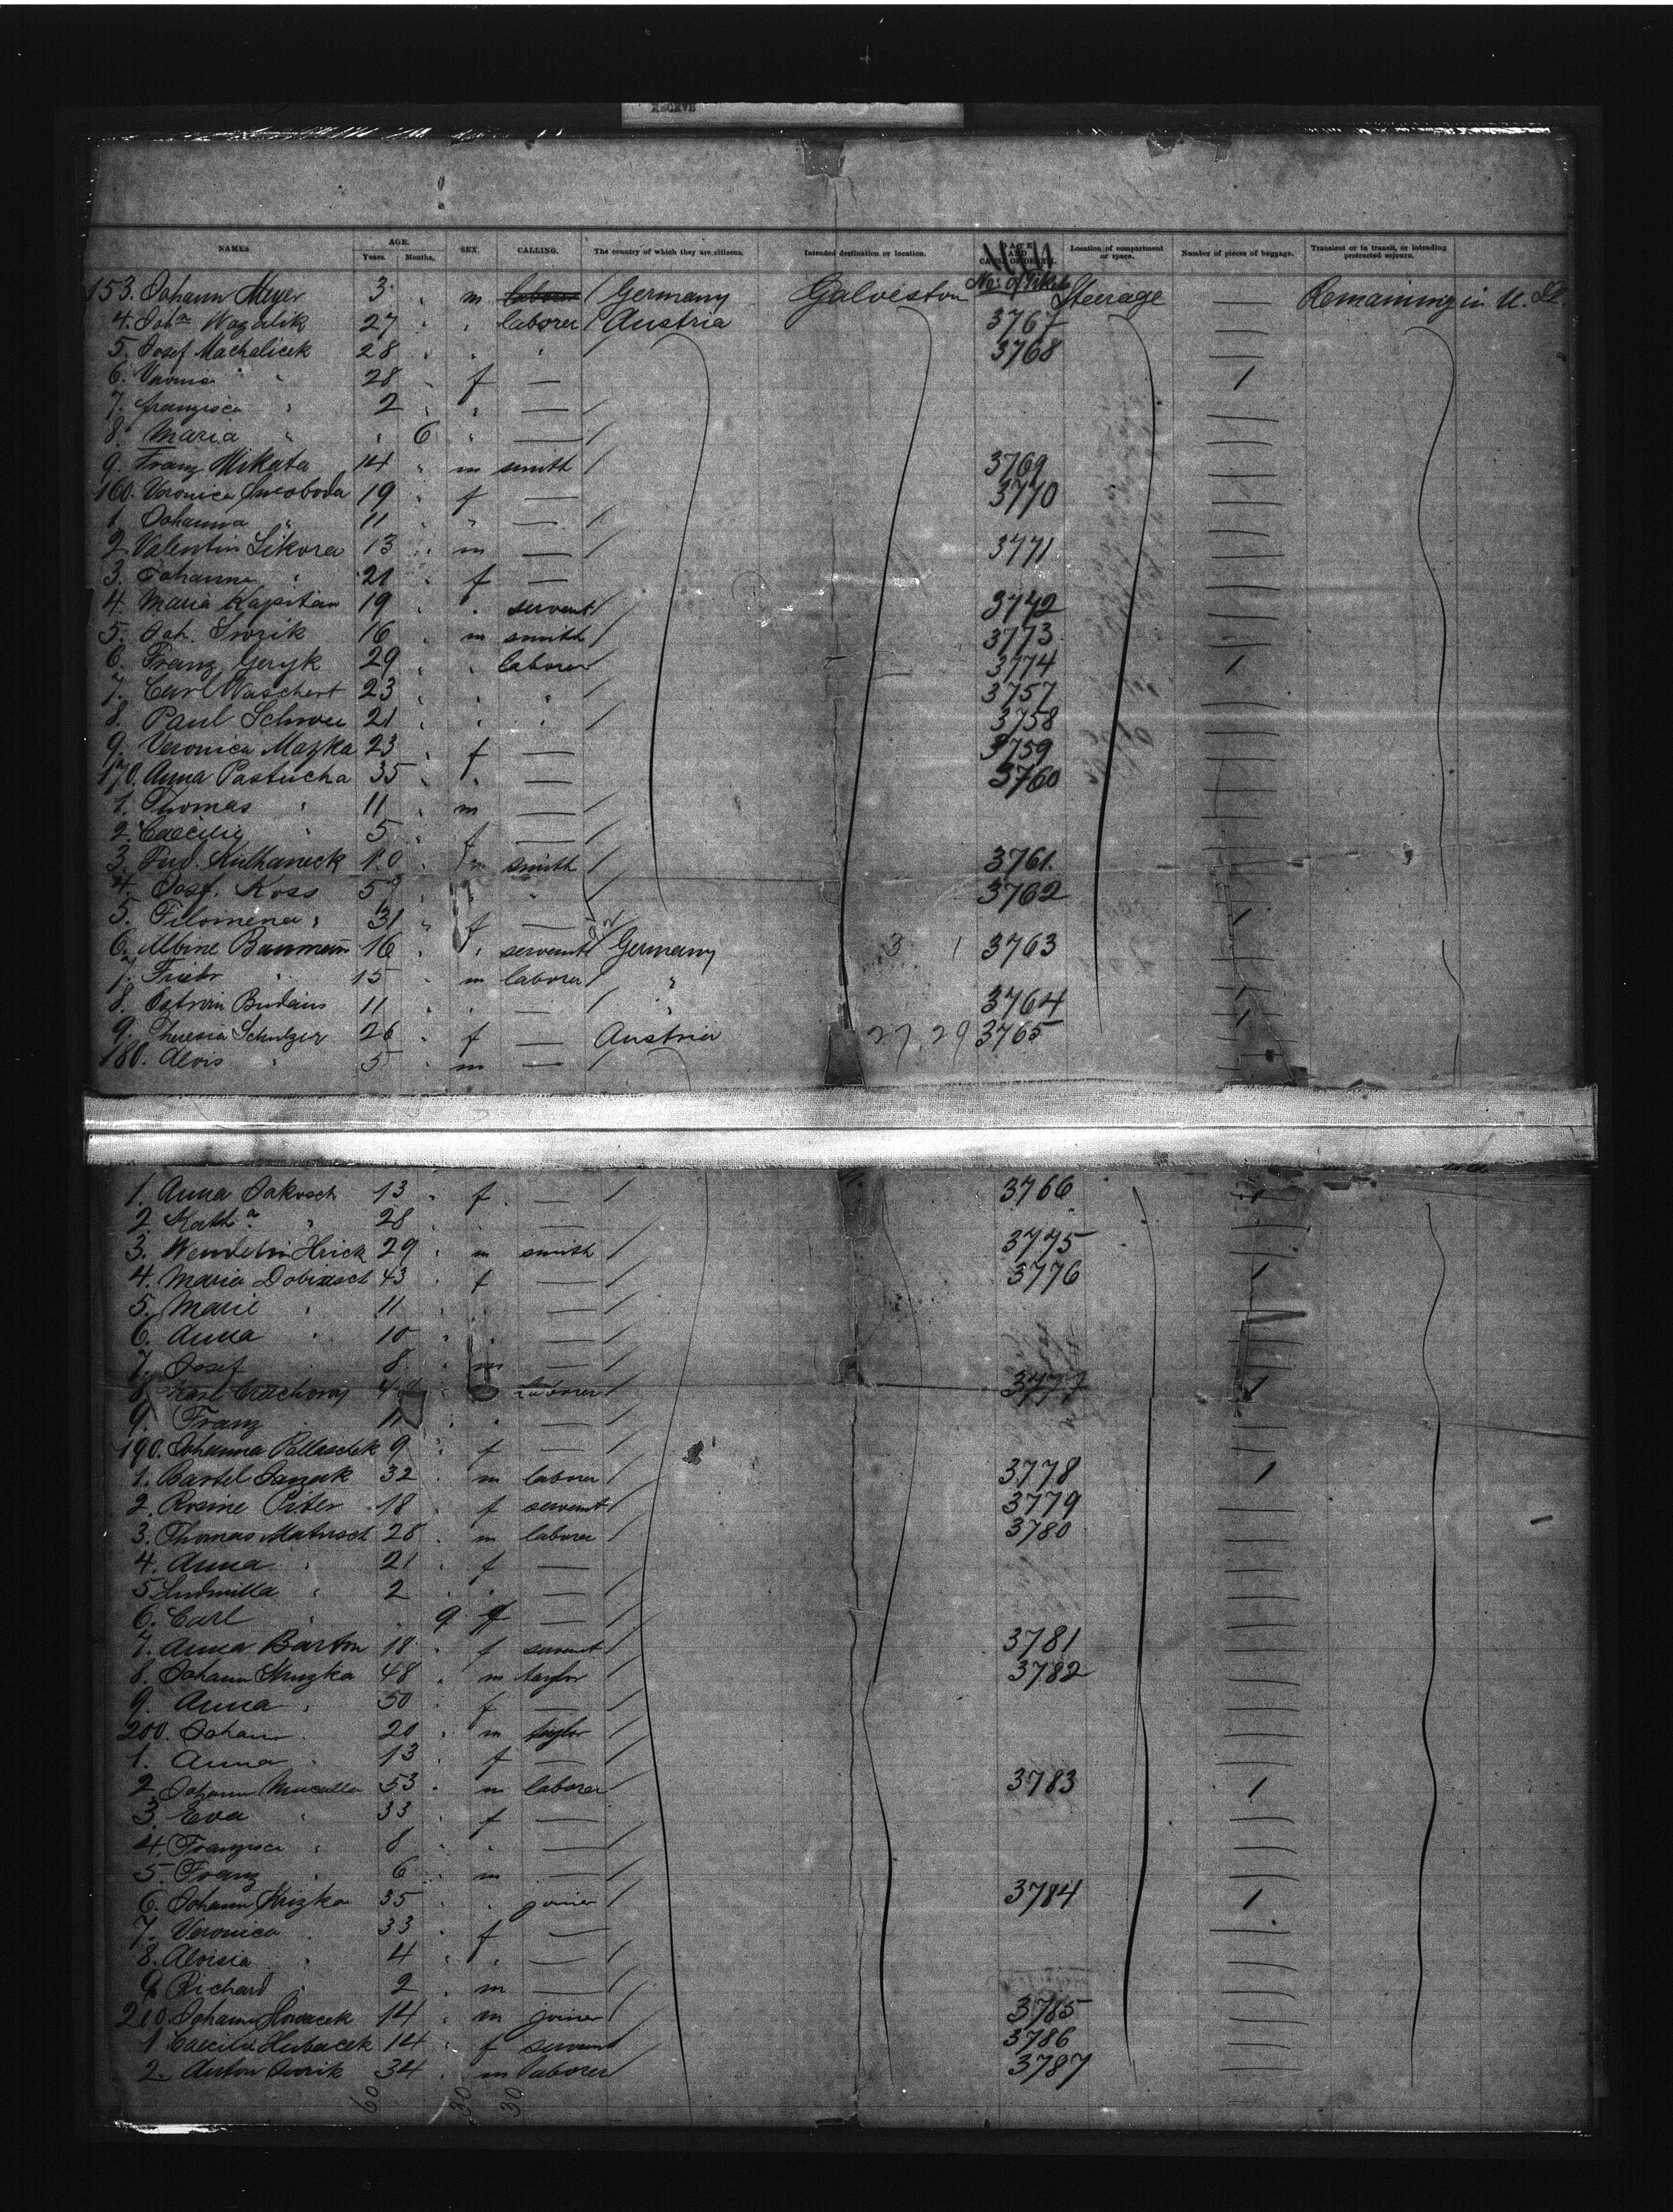 NAMES. AGE. Years. Months. SEX. CALLING. The country of which they are citizens. Intended destination or location. DATE AND CAUSE OF DEATH. Location of compartment or space. Number of pieces of baggage. Transient or in transit, or intending protracted sojourn.
No. of Tickets
153. Johann Meyer 3 " m laborer / Germany Galveston Steerage — Remaining in U. St.
4. Joh.a 27 " " laborer / Austria 3767 —
5. Josef Machalicek 28 " " " / 3768 —
6. " 28 " f — 1
7. Franzisca " 2 " " — / —
8. Maria " " 6 " — / —
9. Franz Mikata 14 " m smith / 3769 —
160. Veronica Swoboda 19 " f — 3770 —
1. Johanna " 11 " " — / —
2. Valentin Sikora 13 " m — / 3771 —
3. Johanna " 21 " f — —
4. Maria Kapitan 19 " " servant / 3772 —
5. Joh. 16 " m smith / 3773 —
6. Franz Geryk 29 " " laborer / 3774 1
7. Carl Waschert 23 " " " / 3757 —
8. Paul 21 " " " / 3758 —
9. Veronica Mazka 23 " f — 3759 —
170. Anna Pastucha 35 " " — 3760 —
1. Thomas " 11 " m — / —
2. Caecilie " 5 " f — / —
3. Kulhaneck " m smith / 3761 —
4. Josf. Koss " " " / 3762 —
5. Filomena " 31 " f — 1
6. Albine Baumann 16 " " servant / Germany 3 1 3763 —
7. " 15 " m laborer / " —
8. 11 " " — / " 3764 1
9. Theresia 26 " f — Austria 27. 29 3765 1
180. Alois " 5 " m — / —
1. Anna Jakosch 13 " f — / 3766 1
2. Kath.a " 28 " " — —
3. Wendelin Hrick 29 " m smith / 3775 —
4. Maria Dobiasch 43 " f — / 3776 1
5. Marie " 11 " " — / —
6. Anna " 10 " " — / —
7. Josef " 8 " m — / —
8. Karl laborer / 3777 1
9. Franz " 11 " " — / —
190. Johanna 9 " f — / —
1. Bartel 32 " m laborer / 3778 1
2. Rosine 18 " f servant / 3779 —
3. Thomas Matusch " m laborer / 3780 —
4. Anna " 21 " f — —
5. Ludmilla " 2 " " — / —
6. Carl " " 9 — / —
7. Anna Barton 18 " f servant / 3781 —
8. Johann 48 " m taylor / 3782 —
9. Anna " 50 " f — / —
200. Johann " 20 " m taylor / —
1. Anna " 13 " f — / —
2. Johann 53 " m laborer / 3783 1
3. Eva " 33 " f — —
4. Franzisca " 8 " " — / —
5. Franz " 6 " m — / —
6. Johann 35 " " joiner / 3784 1
7. Veronica " 33 " f — —
8. Aloisia " 4 " " — / —
9. Richard " 2 " m — / —
210. Johann 14 " m joiner / 3785 —
1. Caecilie Hubacek 14 " f servant 3786 —
2. Anton 34 " m laborer / 3787 —
60 30 30